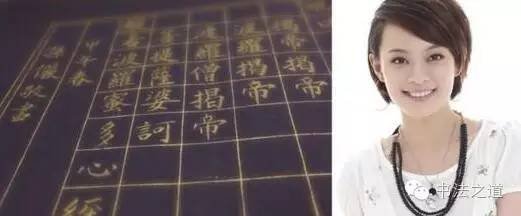 揭帝揭帝
波羅揭帝
波羅僧揭帝
菩提薩婆訶
般若波羅蜜多心經
甲午春
孫儷敬書
书法之道